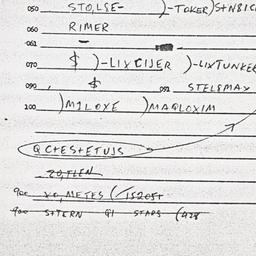 050 STO,LSE- )-TOKER)S+NBIC
060 RIMER
061
070 $ )-LIXCIJER )-LIXTUNKE
090 $ 092 STELSMAX
200 )MILOXE )MAQLOXIM
QC+ES+ETUIS
ZO,FLEN
900 XO,METES (/15205+
900 S+TERN QI STAPS (428